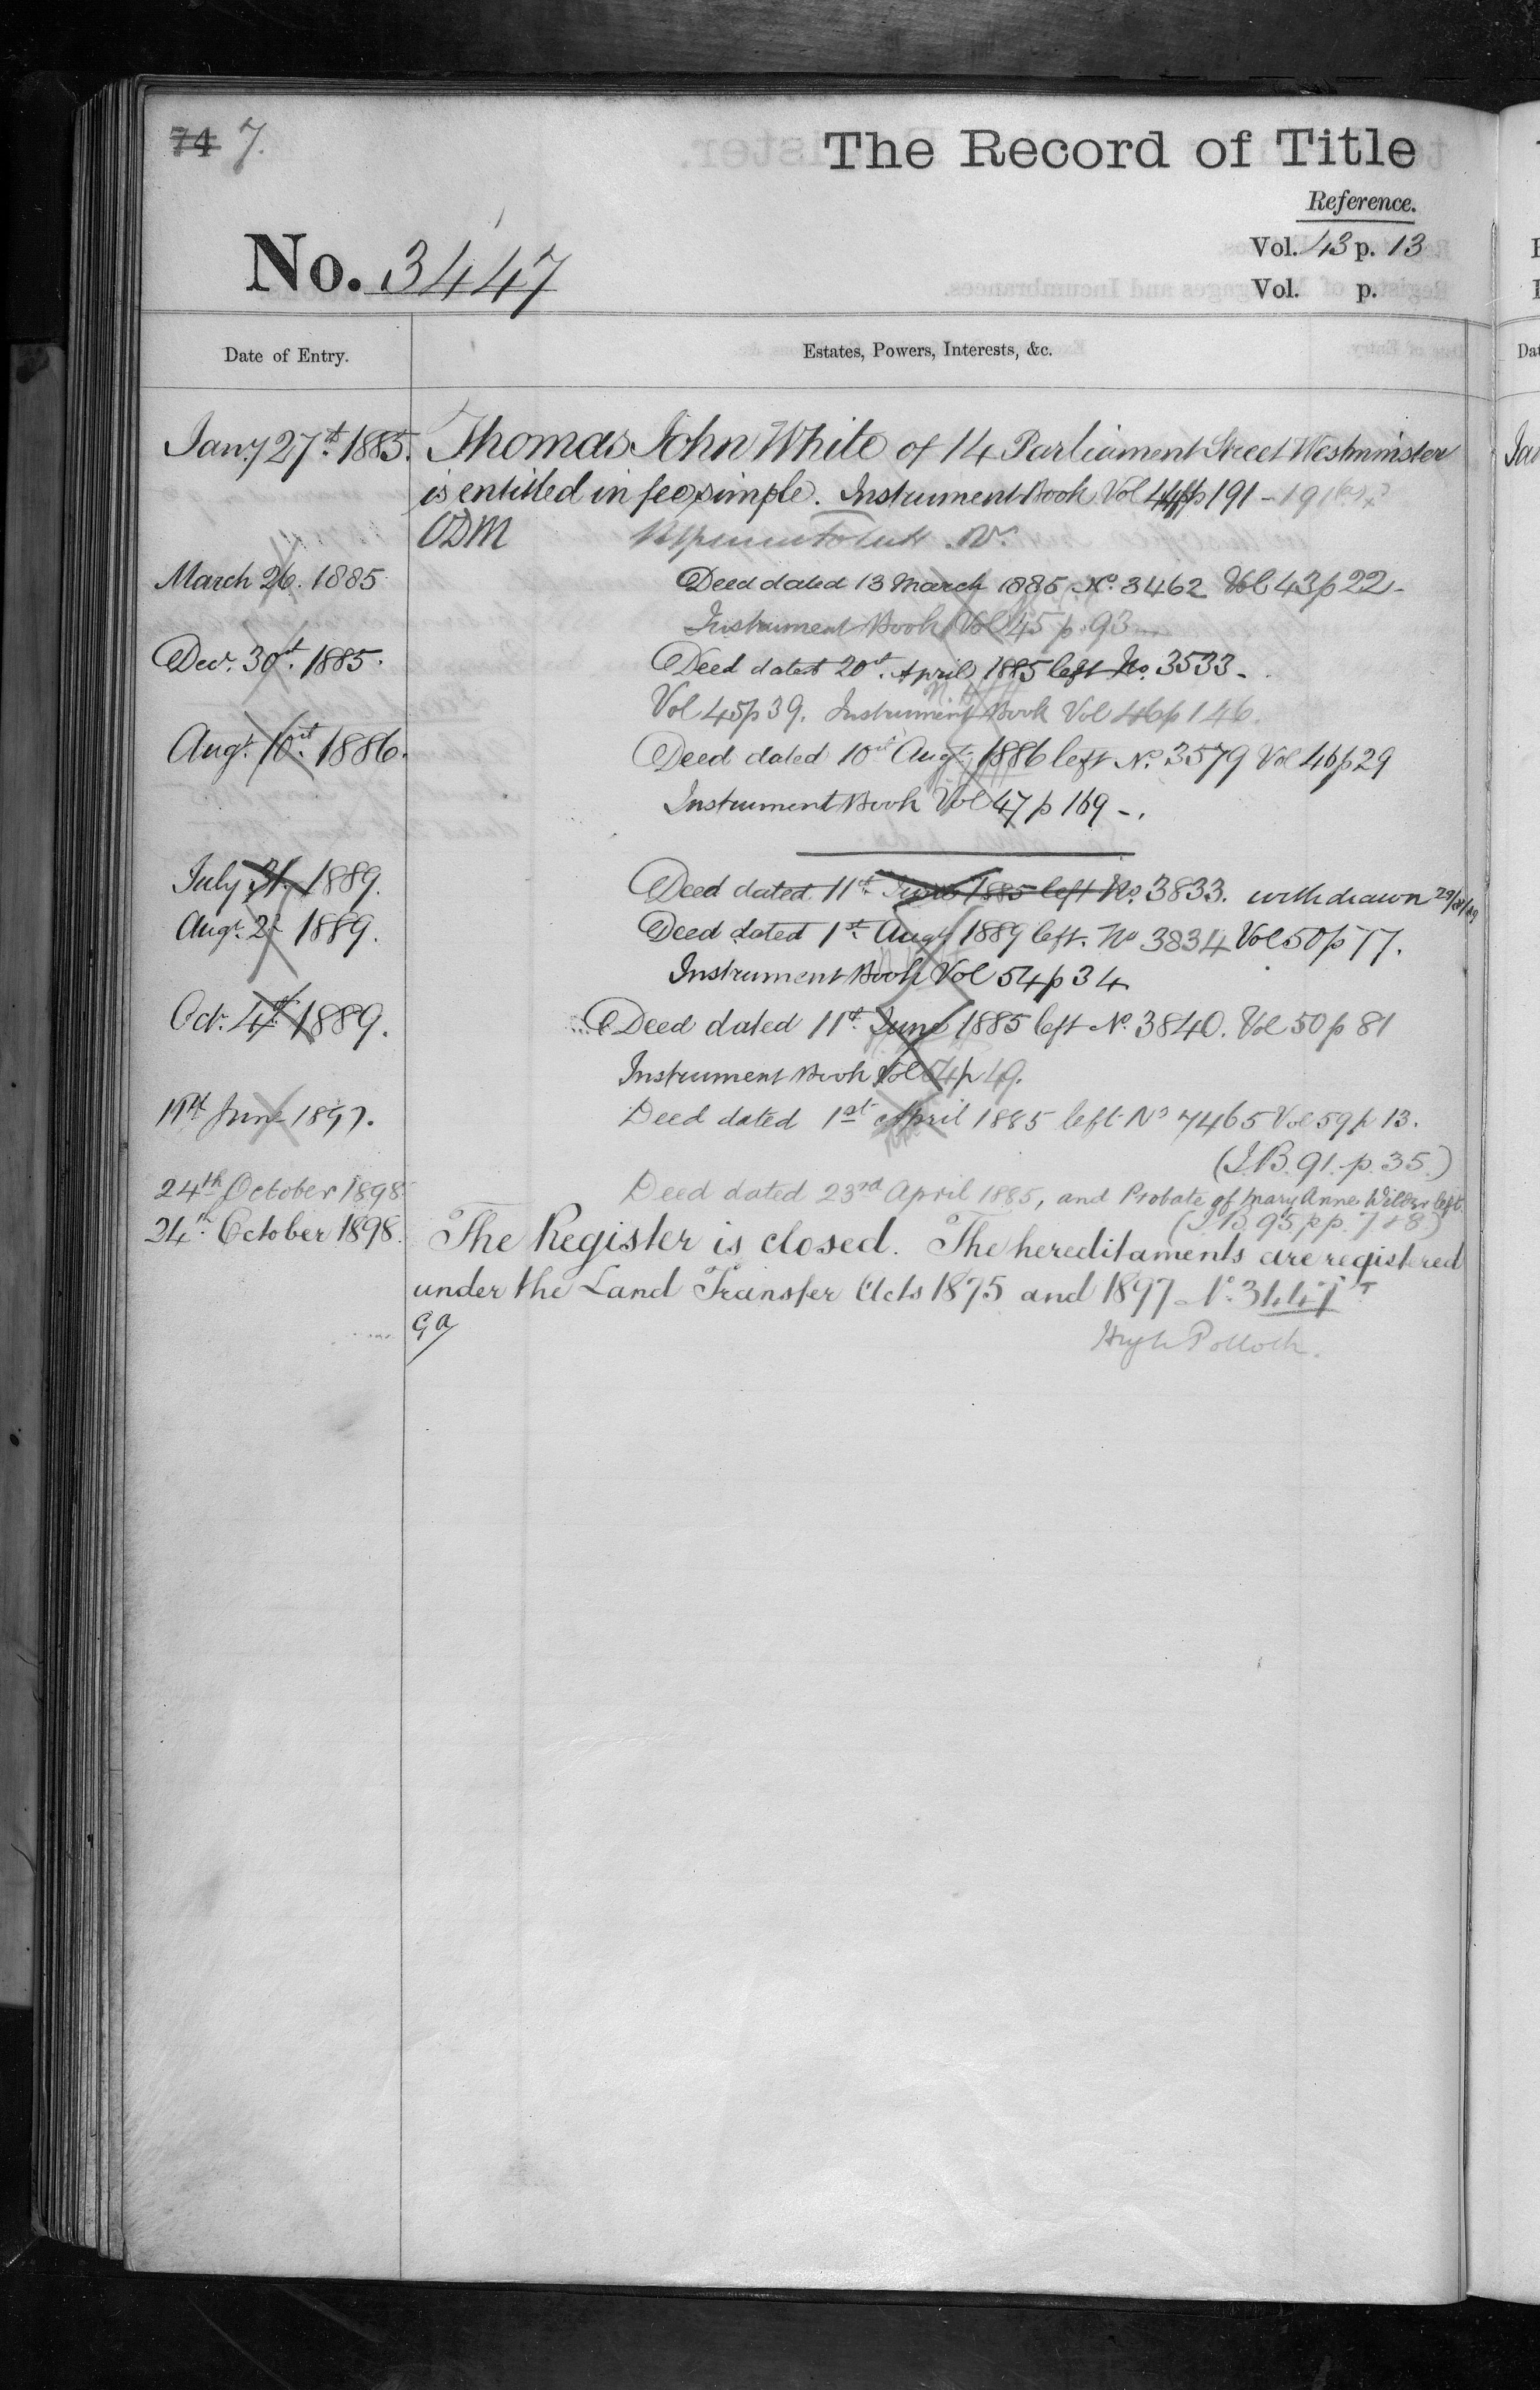 74 7.
The Record of Title
Reference.
Vol. 43 p. 13
No. 3447
Vol. p.
Date of Entry.
Estates, Powers, Interests, &c.
Jany 27th 1885. Thomas John White of 14 Parliament Street Westminster
is entitled in fee simple. Instrument Book Vol 44 p 191 -
ODM
March 26. 1885 Deed dated 13 March 1885 No. 3462 Vol 43 p 22 -
Instrument Book Vol 45 p. 93
Decr. 30th. 1885. Deed dated 20th. April 1885 left No. 3533 -
Vol 45 p 39. Instrument Book Vol 46 p 146.
Augt. 10th. 1886. Deed dated 10th Augt. 1886 left No. 3579 Vol 46 p 29
Instrument Book Vol 47 p 169 -.
July 31. 1889. Deed dated 11th June 1885 left No. 3833. withdrawn
Augt. 2 1889. Deed dated 1st. Augt 1889 left. No 3834 Vol 50 p 77.
Instrument Book Vol 54 p 34
Octr. 4th 1889. Deed dated 11th June 1885 left No. 3840. Vol 50 p 81
Instrument Book Vol 54 p 49.
11th June 1897. Deed dated 1st April 1885 left No 7465 Vol 59 p 13.
(I.B. 91. p. 35.)
24th October 1898 Deed dated 23rd April 1885, and Probate of Mary Anne Wilder left.
(I.B. 95 pp. 7 & 8)
24th October 1898. The Register is closed. The hereditaments are registered
under the Land Transfer Acts 1875 and 1897 No. 3447
GA
Hugh Pollock.